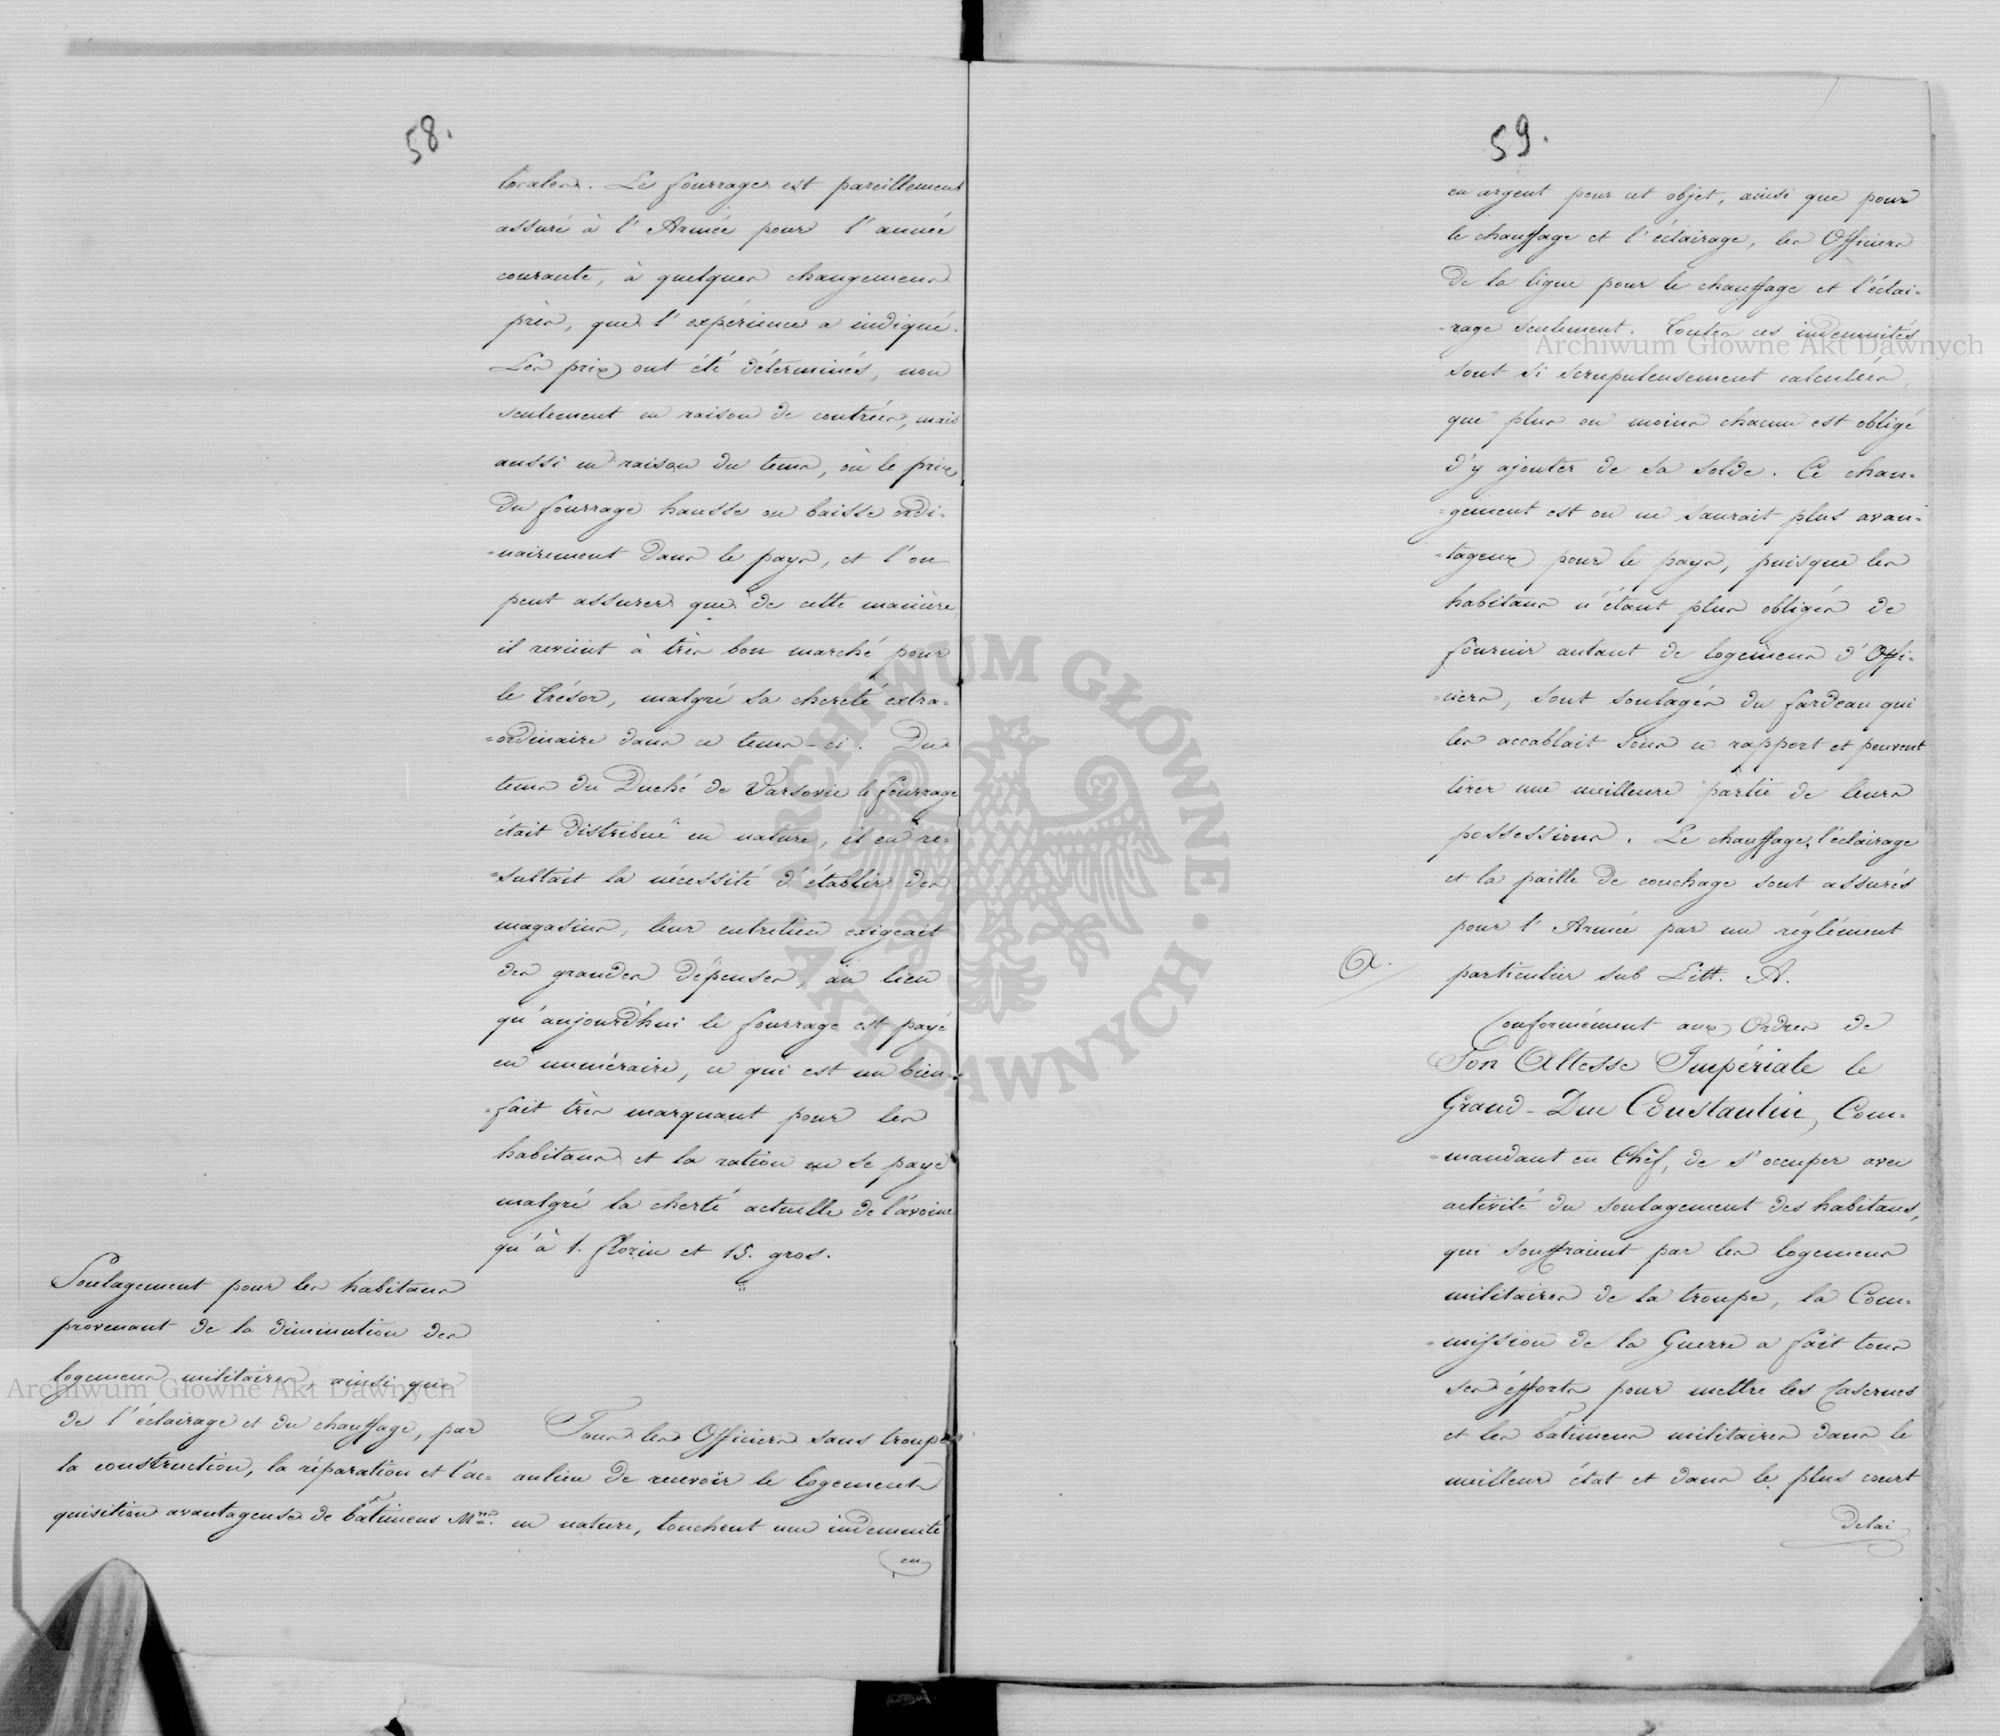 58.
locales. Le fourrage est pareillement
assuré à l'Armée pour l'année
courante, à quelques changemens
près, que l'expérience a indiqué.
Les prix ont été déterminés, non
seulement en raison de contrées, mais
aussi en raison du tems, où le prix
du fourrage hausse ou baisse ordi-
=nairement dans le pays, et l'on
peut assurer que de cette manière
il revient à très bon marché pour
le Trésor, malgré sa chereté extra-
=ordinaire dans ce tems-ci. Du
tems du Duché de Varsovie le fourrage
était distribué en nature, il en ré-
=sultait la nécessité d'établir des
magasins, leur entretien exigeait
des grandes dépenses, au lieu
qu'aujourd'hui le fourrage est payé
en numéraire, ce qui est un bien-
=fait très marquant pour les
habitans et la ration ne se paye
malgré la cherté actuelle de l'avoine
qu'à 1. florin et 15. gros.
Soulagement pour les habitans
provenant de la diminution des
logemens militaires, ainsi que
de l'éclairage et du chauffage, par
la construction, la réparation et l'ac-
quisition avantageuse de bâtimens M.res
Tous les Officiers sans troupes
aulieu de recevoir le logement
en nature, touchent une indemnité
en
59.
en argent pour cet objet, ainsi que pour
le chauffage et l'éclairage, les Officiers
de la ligne pour le chauffage et l'éclai-
-rage seulement. Toutes ces indemnités
sont si scrupuleusement calculées,
que plus ou moins chacun est obligé
d'y ajouter de sa solde. Ce chan-
=gement est on ne saurait plus avan-
=tageux pour le pays, puisque les
habitans n'étant plus obligés de
fournir autant de logemens d'Offi-
=ciers, sont soulagés du fardeau qui
les accablait sous ce rapport et peuvent
tirer une meilleure partie de leurs
possessions. Le chauffage, l'éclairage
et la paille de couchage sont assurés
pour l'Armée par un réglément
A.
particulier sub Litt. A.
Conformément aux Ordres de
Son Altesse Impériale le
Grand-Duc Constantin, Com-
=mandant en Chef, de s'occuper avec
activité du soulagement des habitans,
qui souffraient par les logemens
militaires de la troupe, la Com-
=mission de la Guerre a fait tous
ses éfforts pour mettre les Casernes
et les bâtimens militaires dans le
meilleur état et dans le plus court
delai
Archiwum Główne Akt Dawnych
Archiwum Główne Akt Dawnych
ARCHIWUM GŁÓWNE AKT DAWNYCH